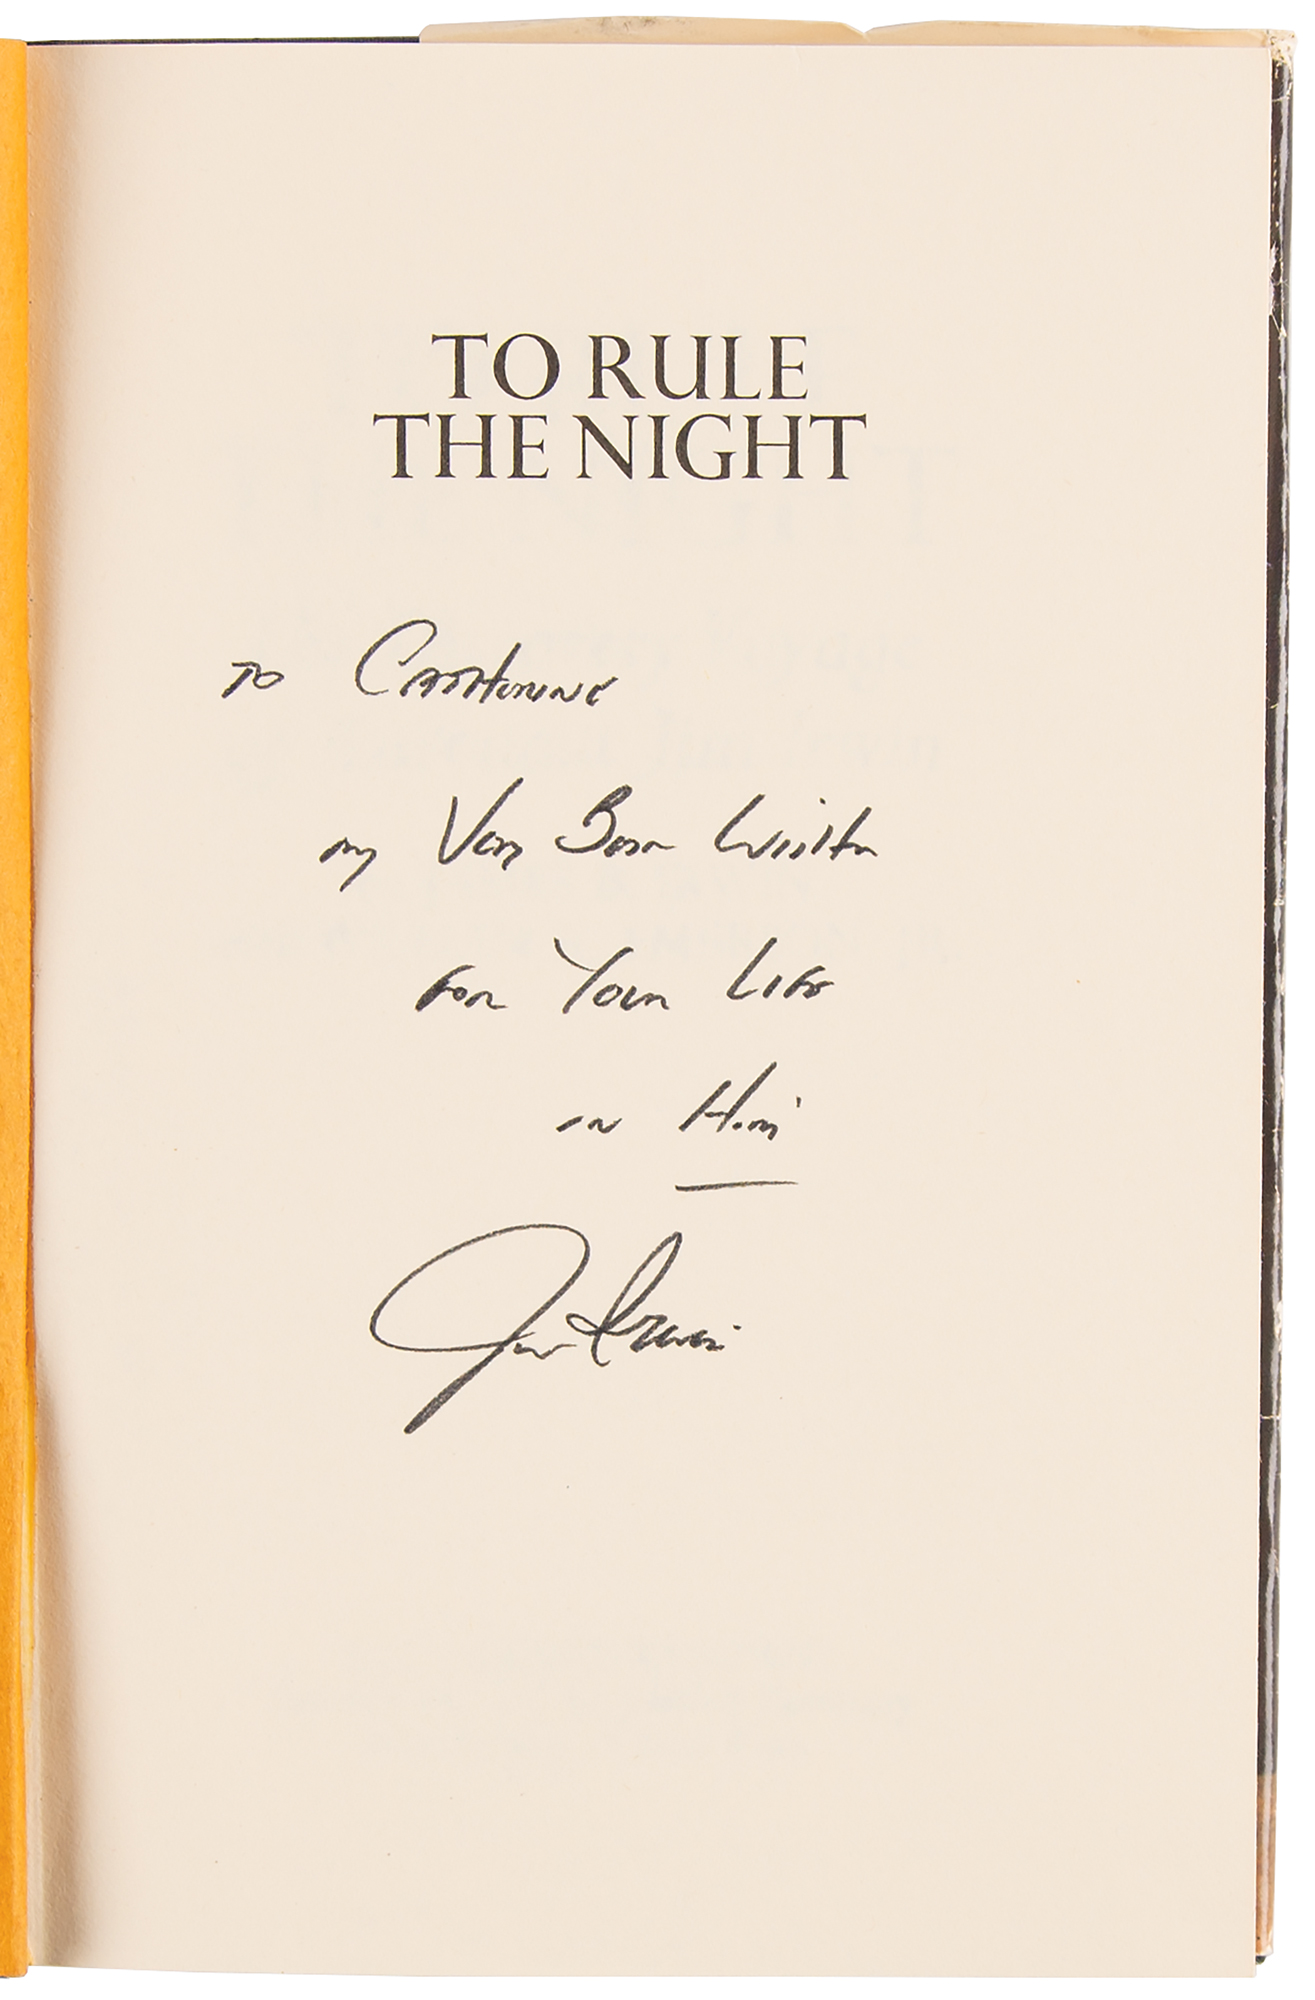 TO RULE
THE NIGHT
TO Catherine
my Very Best Wishes
for Your Life
in Him
Jim Irwin